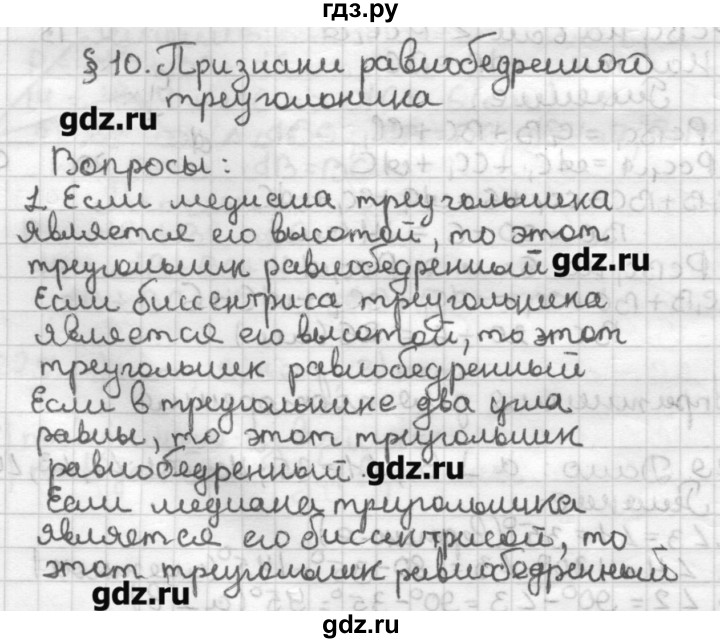 гдз.ру
§ 10. Признаки равнобедренного
треугольника
gdz.ru
Вопросы:
1. Если медиана треугольника
является его высотой, то этот
треугольник равнобедренный gdz.ru
Если биссектриса треугольника
является его высотой, то этот
треугольник равнобедренный
Если в треугольнике два угла
равны, то этот треугольник
равнобедренный gdz.ru
Если медиана треугольника
является его биссектрисой, то
этот треугольник равнобедренный
gdz.ru
gdz.ru